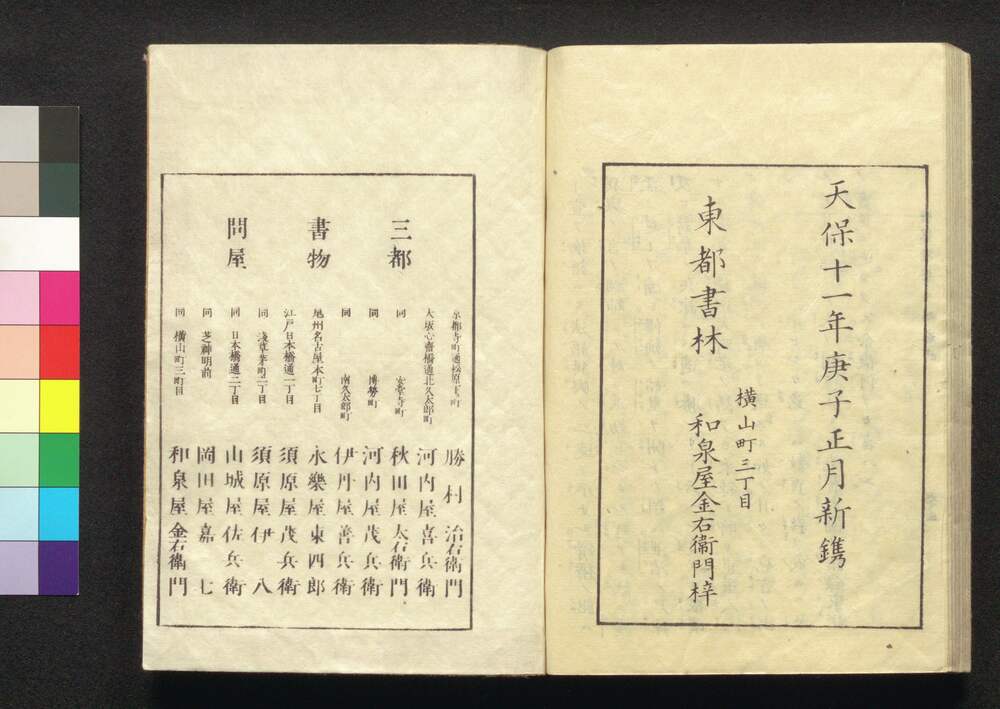 天保十一年庚子正月新鐫
東都書林
横山町三丁目
和泉屋金右衞門梓
三都
書物
問屋
京都寺町通松原下町
勝村治右衛門
大坂心斎橋通北久太郎町
河内屋喜兵衛
同 安堂寺町
秋田屋太右衛門
同 博勞町
河内屋茂兵衛
同 南久太郎町
伊丹屋善兵衛
尾州名古屋本町七丁目
永樂屋東四郎
江戸日本橋通一丁目
須原屋茂兵衛
同 淺草茅町二丁目
須原屋伊八
同 日本橋通二丁目
山城屋佐兵衛
同 芝神明前
岡田屋嘉七
同 横山町三町目
和泉屋金右衛門